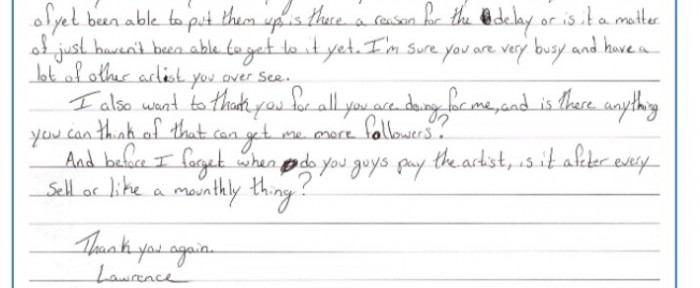 of yet been able to put them up is there a reason for the delay or is it a matter
of just haven't been able to get to it yet. I'm sure you are very busy and have a
lot of other artist you over see.
I also want to thank you for all you are doing for me, and is there anything
you can think of that can get me more followers?
And before I forget when do you guys pay the artist, is it afeter every
Sell or like a mounthly thing?
Thank you again.
Lawrence